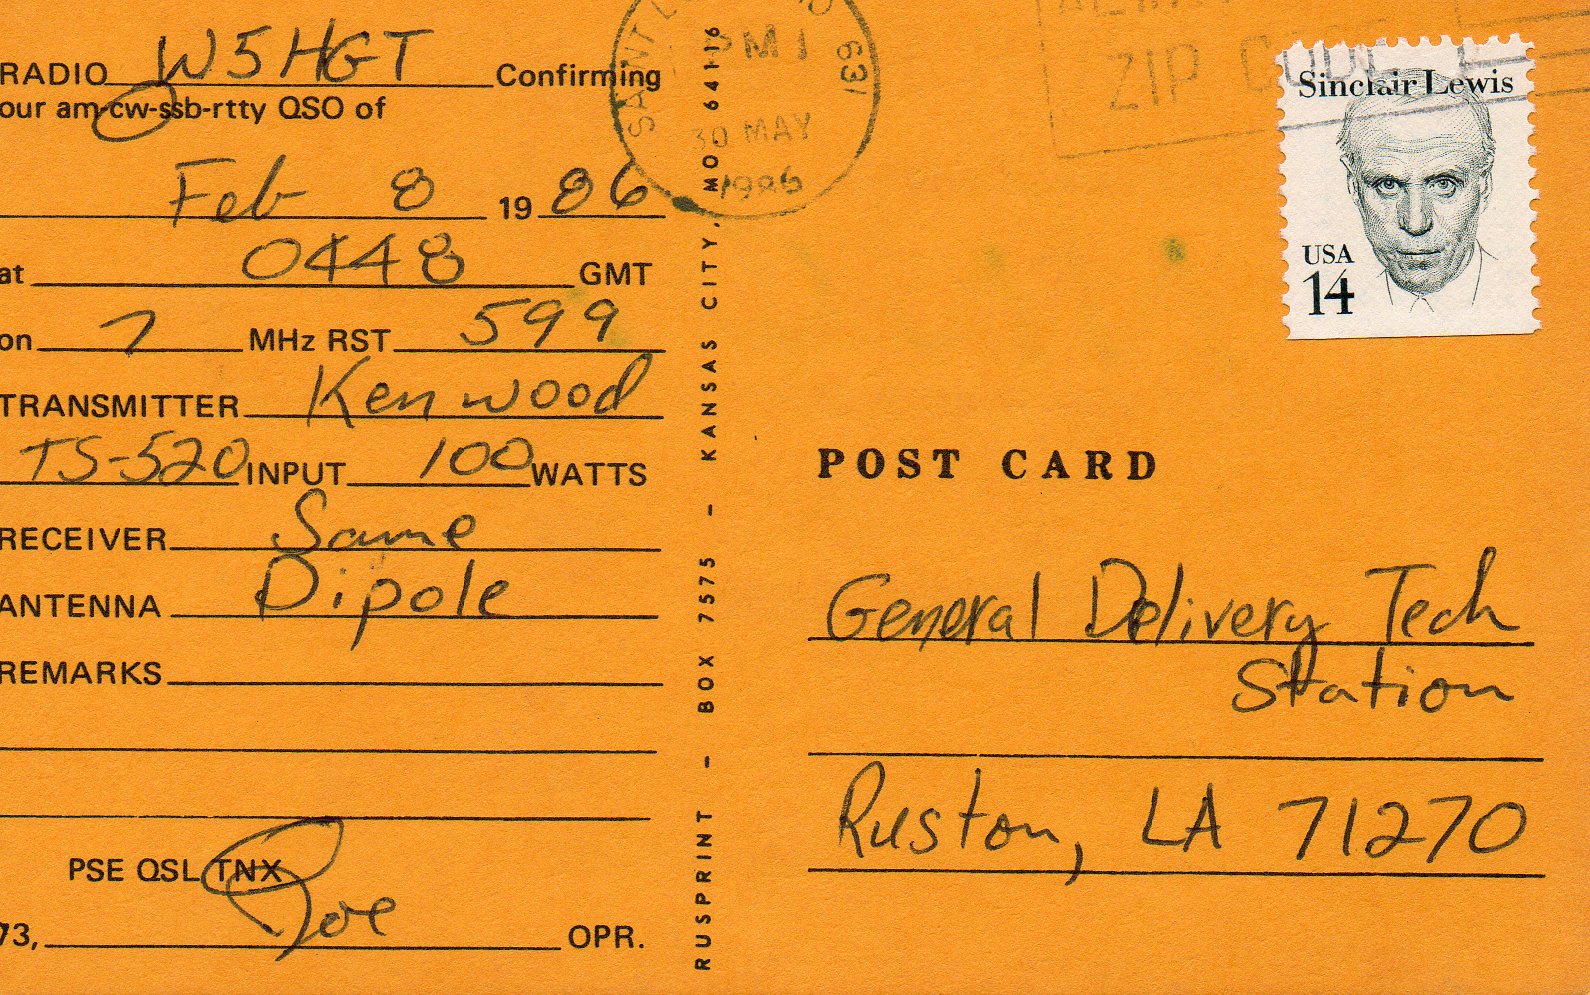 RADIO W5HGT Confirming
our am-cw-ssb-rtty QSO of
Feb 8 1986
at 0448 GMT
on 7 MHz RST 599
TRANSMITTER Kenwood
TS-520 INPUT 100 WATTS
RECEIVER Same
ANTENNA Dipole
REMARKS
PSE QSL TNX
73, Joe OPR.
RUSPRINT - BOX 7575 - KANSAS CITY, MO 64116
PM
631
30 MAY
1986
ZIP CODE
Sinclair Lewis
USA
14
POST CARD
General Delivery Tech
Station
Ruston, LA 71270